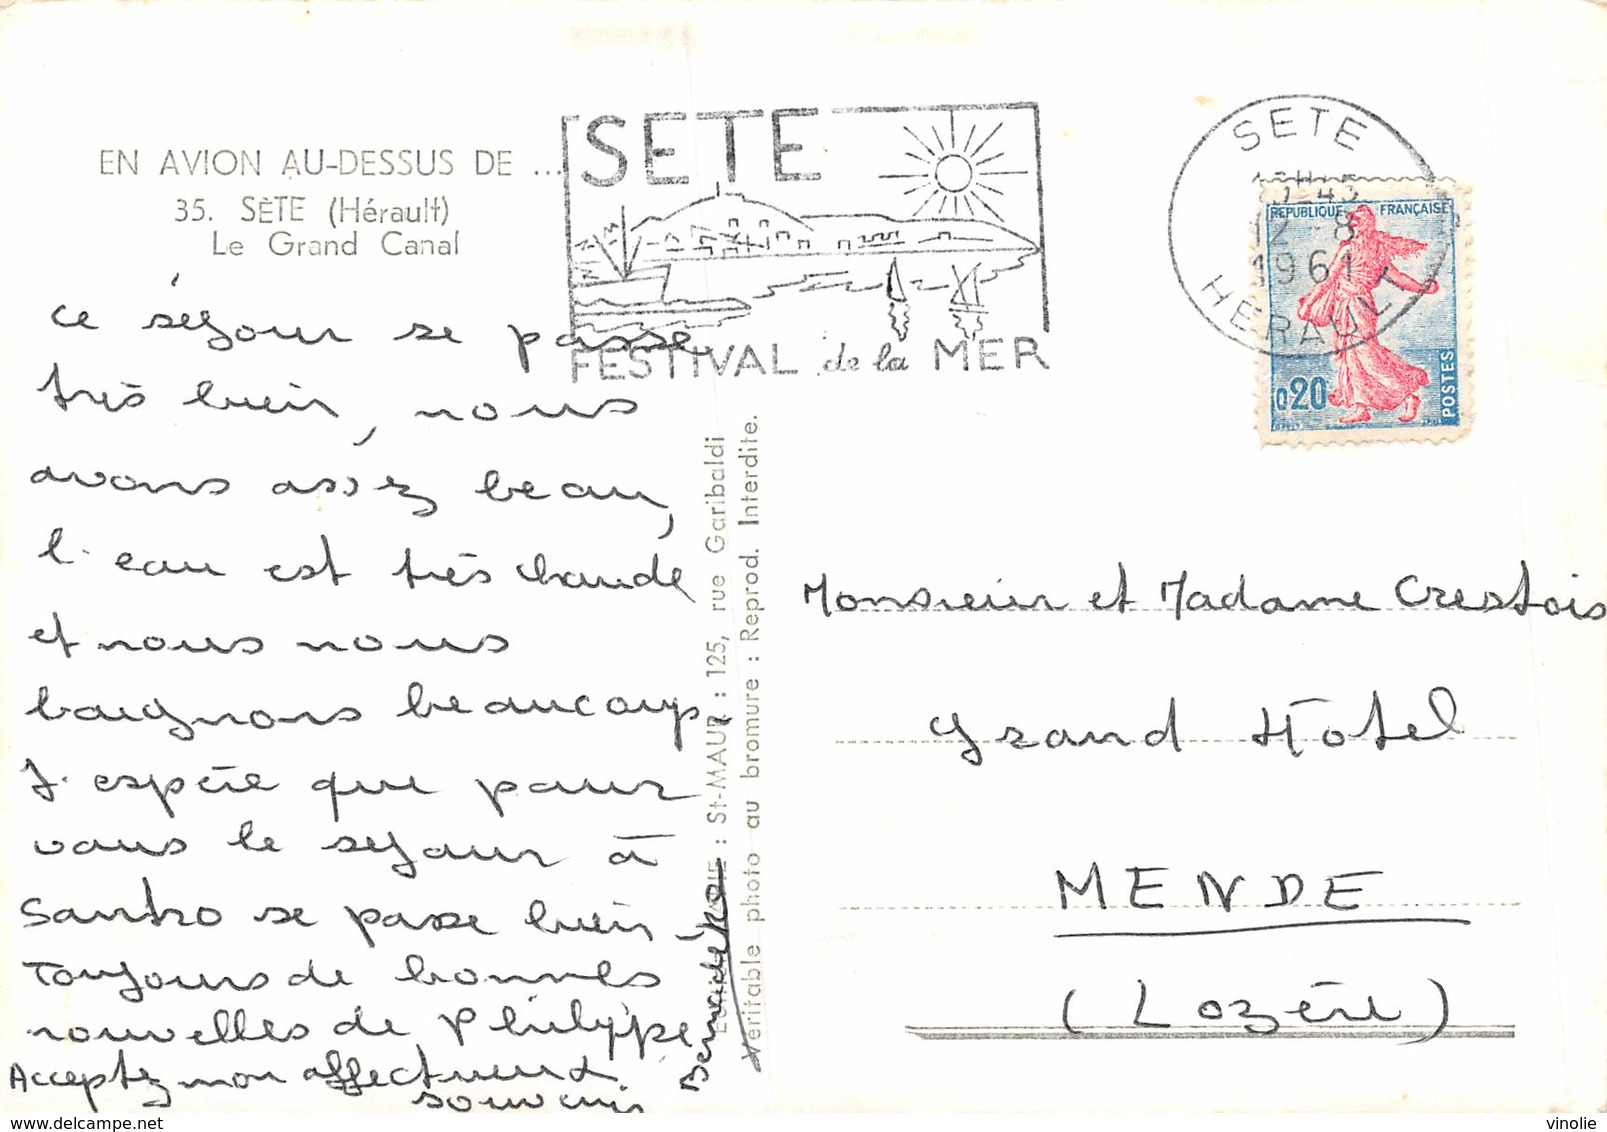 EN AVION AU-DESSUS DE ...
35. SÈTE (Hérault)
Le Grand Canal
SETE
FESTIVAL de la MER
SETE
12-8
1961
HERAULT
REPUBLIQUE FRANÇAISE
0,20
POSTES
Ce séjour se passe
très bien, nous
avons assez beau,
l'eau est très chaude
et nous nous
baignons beaucoup
J'espère que pour
vous le séjour à
Santro se passe bien -
Toujours de bonnes
nouvelles de Philippe
Acceptez mon affectueux
souvenir
Bernadette
: St-MAUR : 125, rue Garibaldi
Véritable photo au bromure : Reprod. Interdite.
Monsieur et Madame Crestois
Grand Hotel
MENDE
(Lozère)
delcampe.net
vinolie